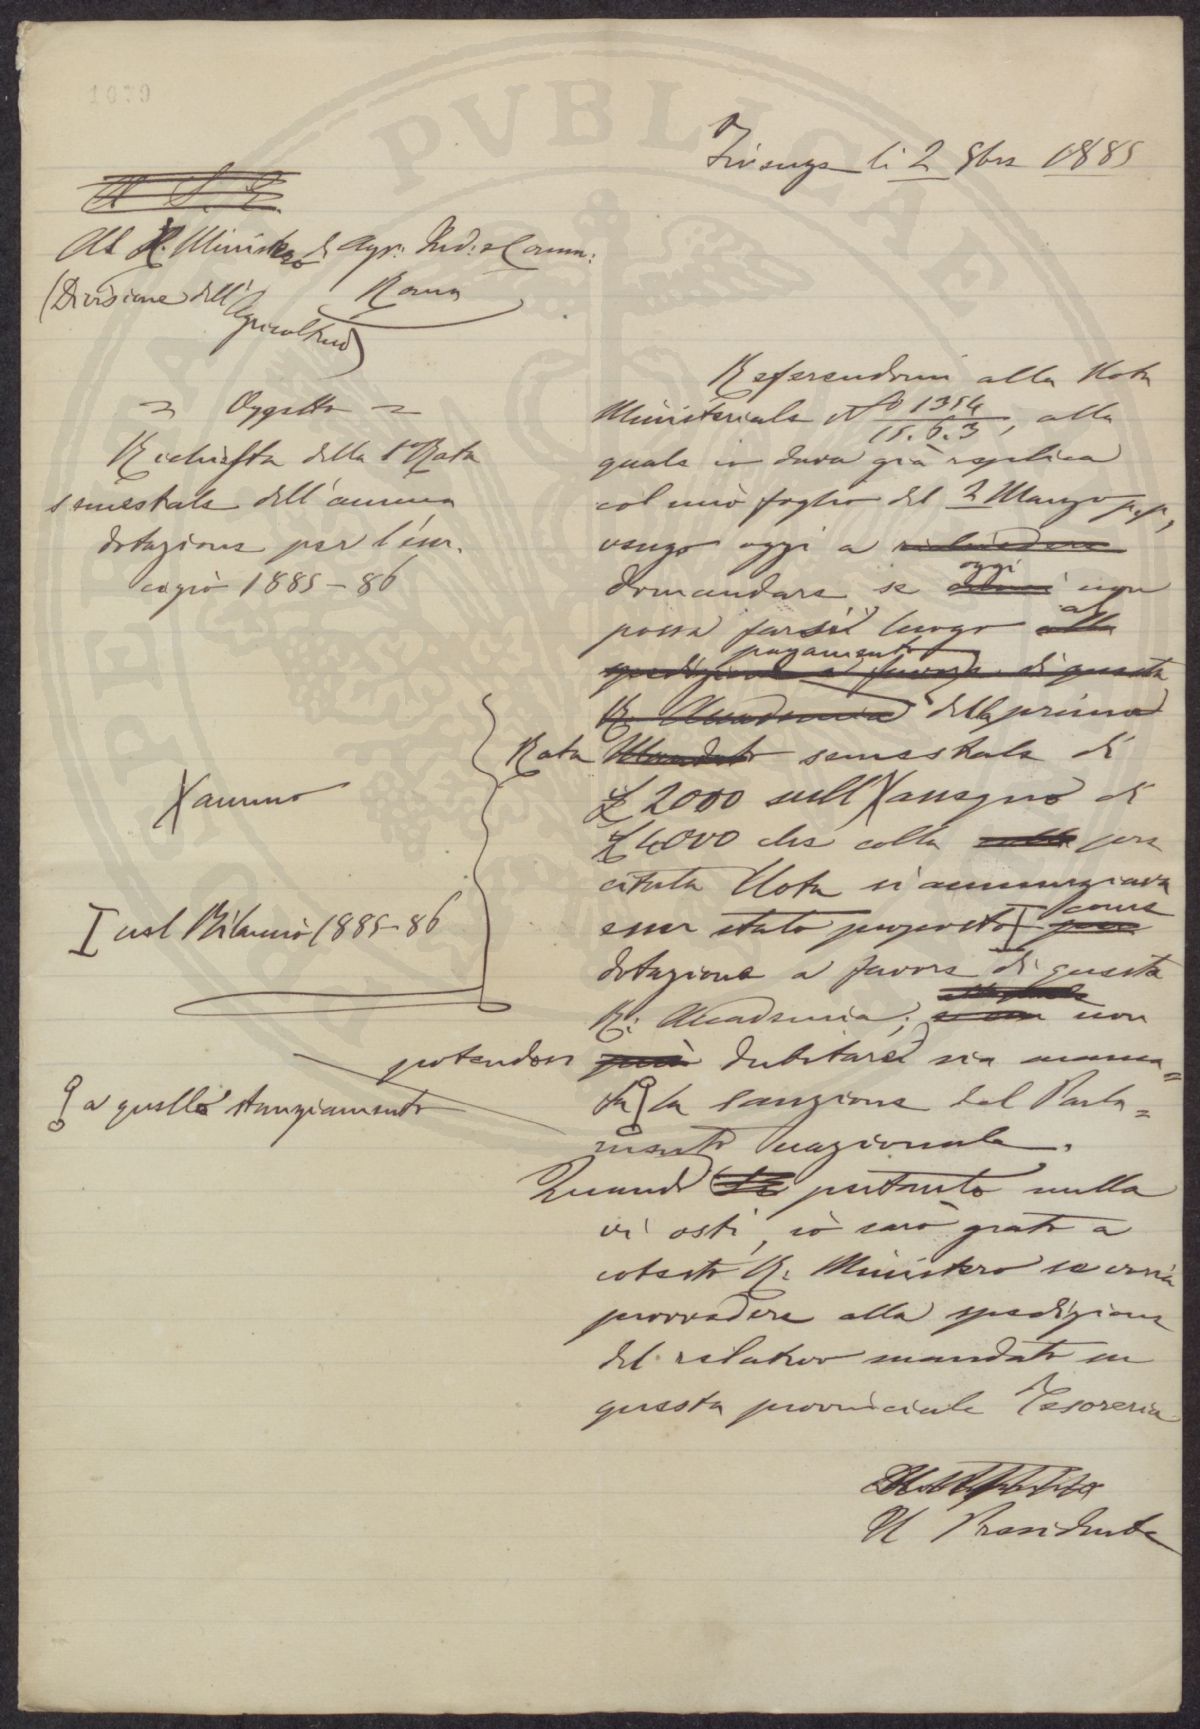 1079
Firenze li 2 9bre 1885
A S. E.
Al R. Ministero di Agr: Ind: e Comm:
(Divisione dell'Agricoltura)
Roma
Oggetto
Richiesta della 1ª Rata
semestrale dell'annua
dotazione per l'eser-
cizio 1885-86
Referendomi alla Nota
Ministeriale Nº 1394/15.6.3, alla
quale io dava già replica
col mio foglio del 2 Marzo p.p.,
vengo oggi a richiedere
domandare se oggi non
possa farsi luogo alla al
spedizione a favore di questa pagamento
R. Accademia della prima
Rata Mandato semestrale di
£ 2000 sull'X assegno di
£ 4000 che colla sulla pre
citata Nota si annunziava
esser stato proposto I per come
dotazione a favore di questa
R. Accademia; non
potendosi più dubitare sia manca=
ta la sanzione del Parla=
mento nazionale.
Quando pertanto nulla
vi osti, io sarò grato a
cotesto R. Ministero se vorrà
provvedere alla spedizione
del relativo mandato su
questa provinciale Tesoreria
Il Presidente
X annuo
I nel Bilancio 1885-86
a quello stanziamento